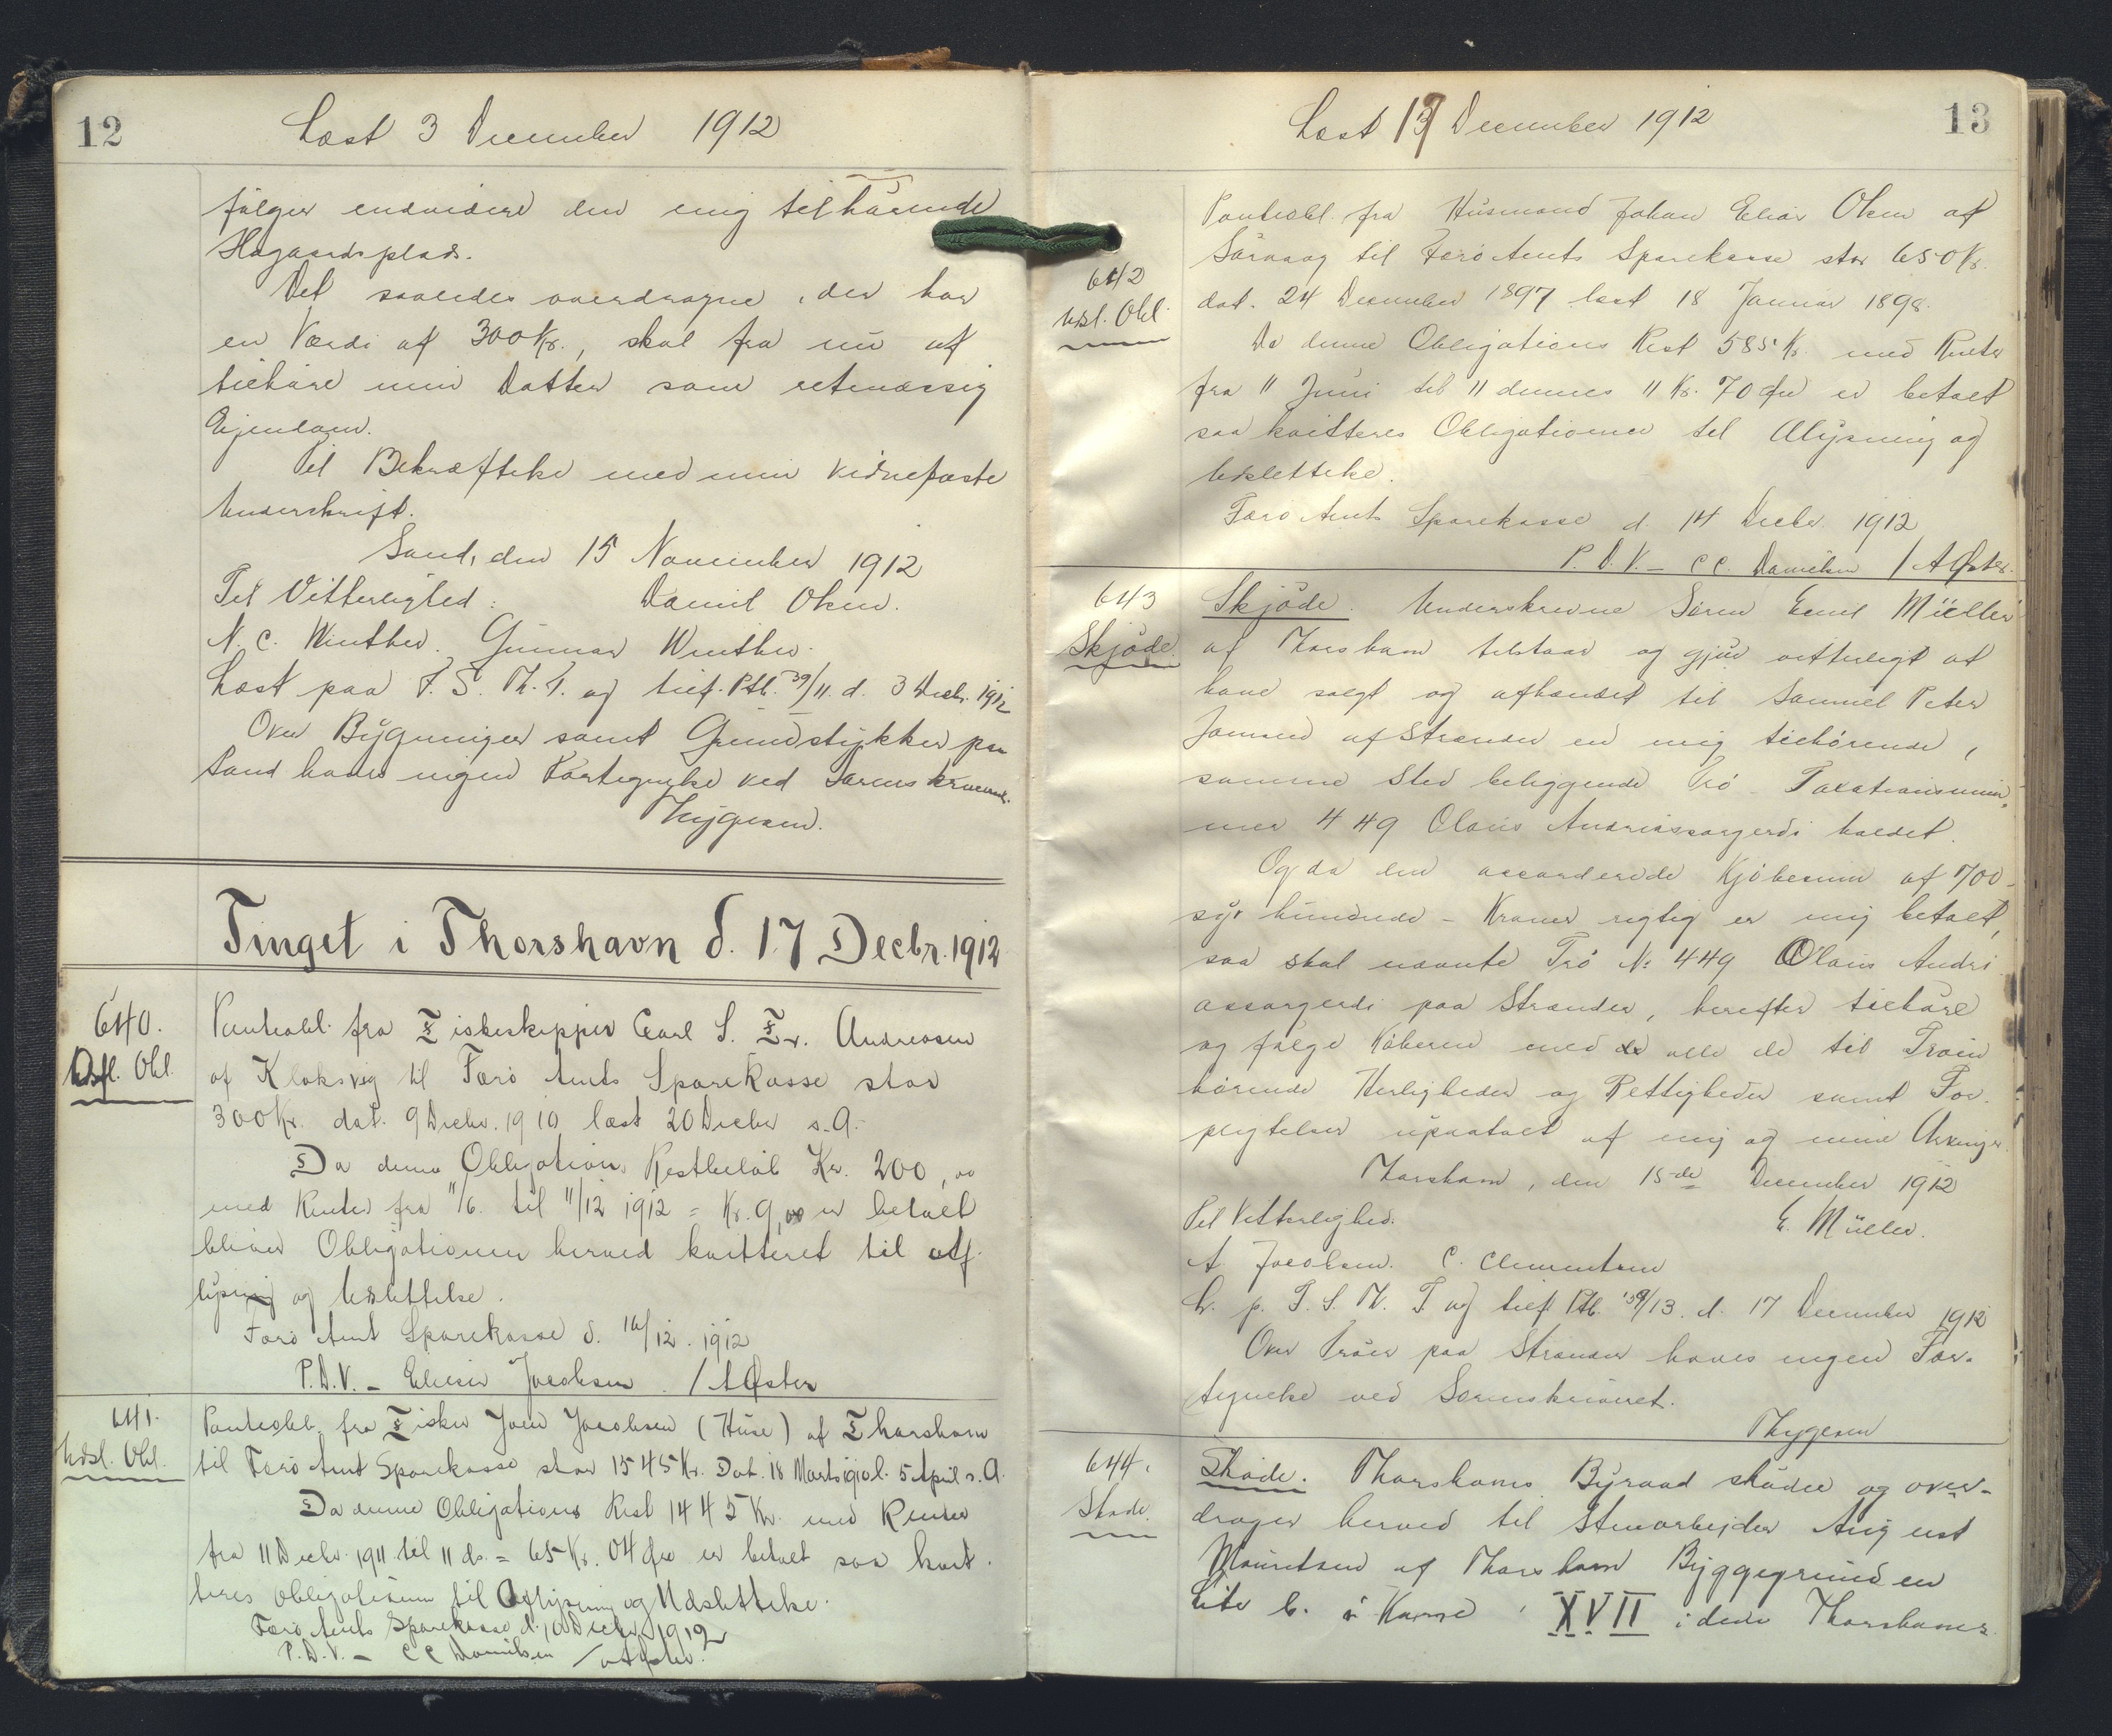 12
Læst 3 December 1912
følger endvidere den mig tilhørende
Hagaardsplads.
Det saaledes overdragne, der har
en Værdi af 300 Kr., skal fra nu af
tilhøre min Datter som retmæssig
Ejendom.
Til Bekræftelse med min vidnefaste
Underskrift.
Sand, den 15 November 1912
Til Vitterlighed: Daniel Olsen.
N. C. Winther. Gunnar Winther.
Læst paa F. S. Th. T. og tilf. Ptb. 39/11. d. 3 Decb. 1912
Over Bygninger samt Grundstykker paa
Sand haves ingen Fortegnelse ved Sorenskriveriet.
Thygesen.
Tinget i Thorshavn d. 17 Decbr. 1912
640.
Udsl. Obl.
Panteobl. fra Fiskeskipper Carl S. Fr. Andreasen
af Klaksvig til Færø Amts Sparekasse stor
300 Kr. dat. 9 Decbr. 1910 læst 20 Decbr s. A.
Da denne Obligations Restbeløb Kr. 200,00
med Renter fra 11/6. til 11/12 1912 = Kr. 9,00 er betalt
bliver Obligationen herved kvitteret til af-
lysning og Udslettelse.
Færø Amt Sparekasse d. 16/12. 1912
P.D.V. – Elieser Jacobsen / A Øster
641.
Udsl. Obl.
Panteobl. fra Fisker Joen Jacobsen (Huse) af Thorshavn
til Færø Amt Sparekasse stor 1545 Kr. Dat. 18 Marts 1910 l. 5 April s. A.
Da denne Obligations Rest 1445 Kr. med Renter
fra 11 Decbr. 1911 til 11 ds. = 65 Kr. 04 Øre er betalt saa kvit-
teres Obligationen til Aflysning og Udslettelse.
Færø Amts Sparekasse d. 10 Decbr. 1912
P.D.V. – C C Danielsen / A Øster.
13
Læst 17 December 1912
642
Udsl. Obl.
Panteobl. fra Husmand Johan Elias Olsen af
Sørvaag til Færø Amts Sparekasse stor 650 Kr.
dat. 24 December 1897 læst 18 Januar 1898.
Da denne Obligations Rest 585 Kr. med Renter
fra 11 Juni til 11 dennes 11 Kr. 70 Øre er betalt
saa kvitteres Obligationen til Aflysning og
Udslettelse.
Færø Amts Sparekasse d. 14 Decbr. 1912
P. D. V. – C C. Danielsen / A Øster.
643
Skjøde.
Skjøde. Underskrevne Søren Emil Müller
af Thorshavn tilstaar og gjør vitterligt at
have solgt og afhændet til Samuel Peter
Joensen af Strænder en mig tilhørende,
samme Sted beliggende Trø Taxationsnum-
mer 449 Olavis Andriassargerdi kaldet.
Og da den accorderede Kjøbesum af 700 –
syv hundrede – Kroner rigtig er mig betalt,
saa skal nævnte Trø No 449 Olavis Andri-
assargerdi paa Strænder, herefter tilhøre
og følge Køberen med de alle de til Trøen
hørende Herligheder og Rettigheder samt For-
pligtelser upaatalt af mig og mine Arvinger.
Thorshavn, den 15de December 1912
Til Vitterlighed. E. Müller.
A Jacobsen. C. Clementsen
L. p. F. S. Th. T. og tilf. Ptb. 39/13. d. 17 December 1912
Over Trøer paa Strænder haves ingen For-
tegnelse ved Sorenskriveriet.
Thygesen
644.
Skøde.
Skøde. Thorshavns Byraad skøder og over-
drager herved til Stenarbejder August
Mouritsen af Thorshavn Byggegrunden
Litr b. i Karré XVII i den Thorshavns